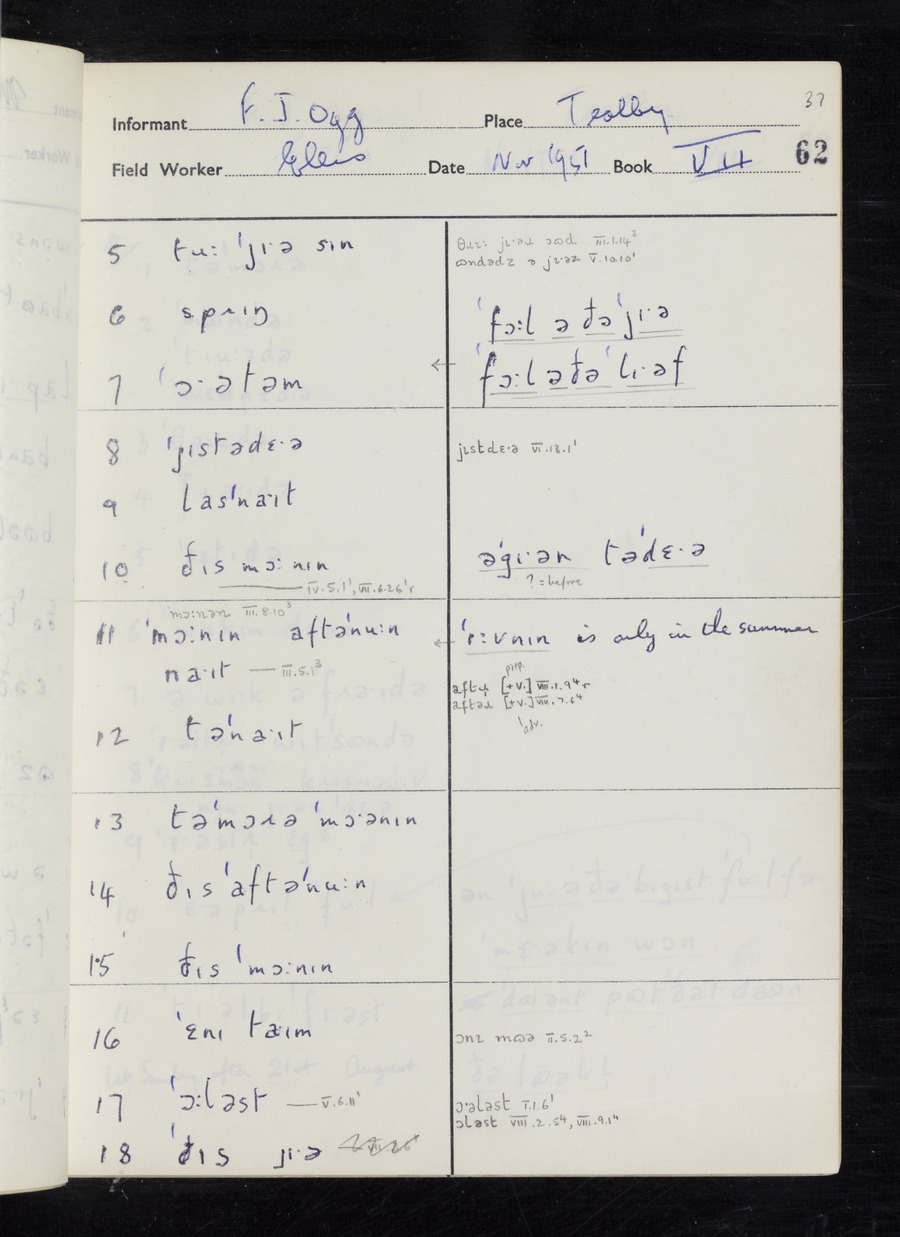 37
Informant F. J. Ogg Place Tealby
Field Worker Ellis Date Nov 1951 Book VII 62
5 tuː ˈjɪˑə sɪn
θɹɪː jɪˑəɹ ɔʊd III.1.14²
ʊndədz ə jɪˑəz V.10.10¹
6 spɹɪŋ
ˈfɔːl ə ðəˈjɪˑə
7 ˈɔˑətəm
← ˈfɔːl əðəˈlɪˑəf
8 ˈjɪstədɛˑə
jɪstdɛˑə VI.13.1¹
9 lasˈnaˑɪt
10 ðɪs mɔːnɪn
əˈgɪˑən təˈdɛˑə
IV.5.1¹, VII.6.26¹r
? = before
mɔːnən III.8.10³
11 ˈmɔːnɪn aftəˈnuːn
← ˈɪːvnɪn is only in the summer
naˑɪt — III.5.1³
prep.
[+V.] VIII.1.9⁴r
aftəɹ [+V.] VIII.7.6⁴
adv.
12 təˈnaˑɪt
13 təˈmɔɹə ˈmɔˑənɪn
14 ðɪs ˈaftəˈnuːn
15 ðɪs ˈmɔːnɪn
16 ˈɛnɪ taˑɪm
ɔnz mʊə II.5.2²
17 ˈɔːləst — V.6.11¹
ɔˑələst I.1.6¹
ɔləst VIII.2.5⁴, VIII.9.1⁴
18 ˈðɪs jɪˑə